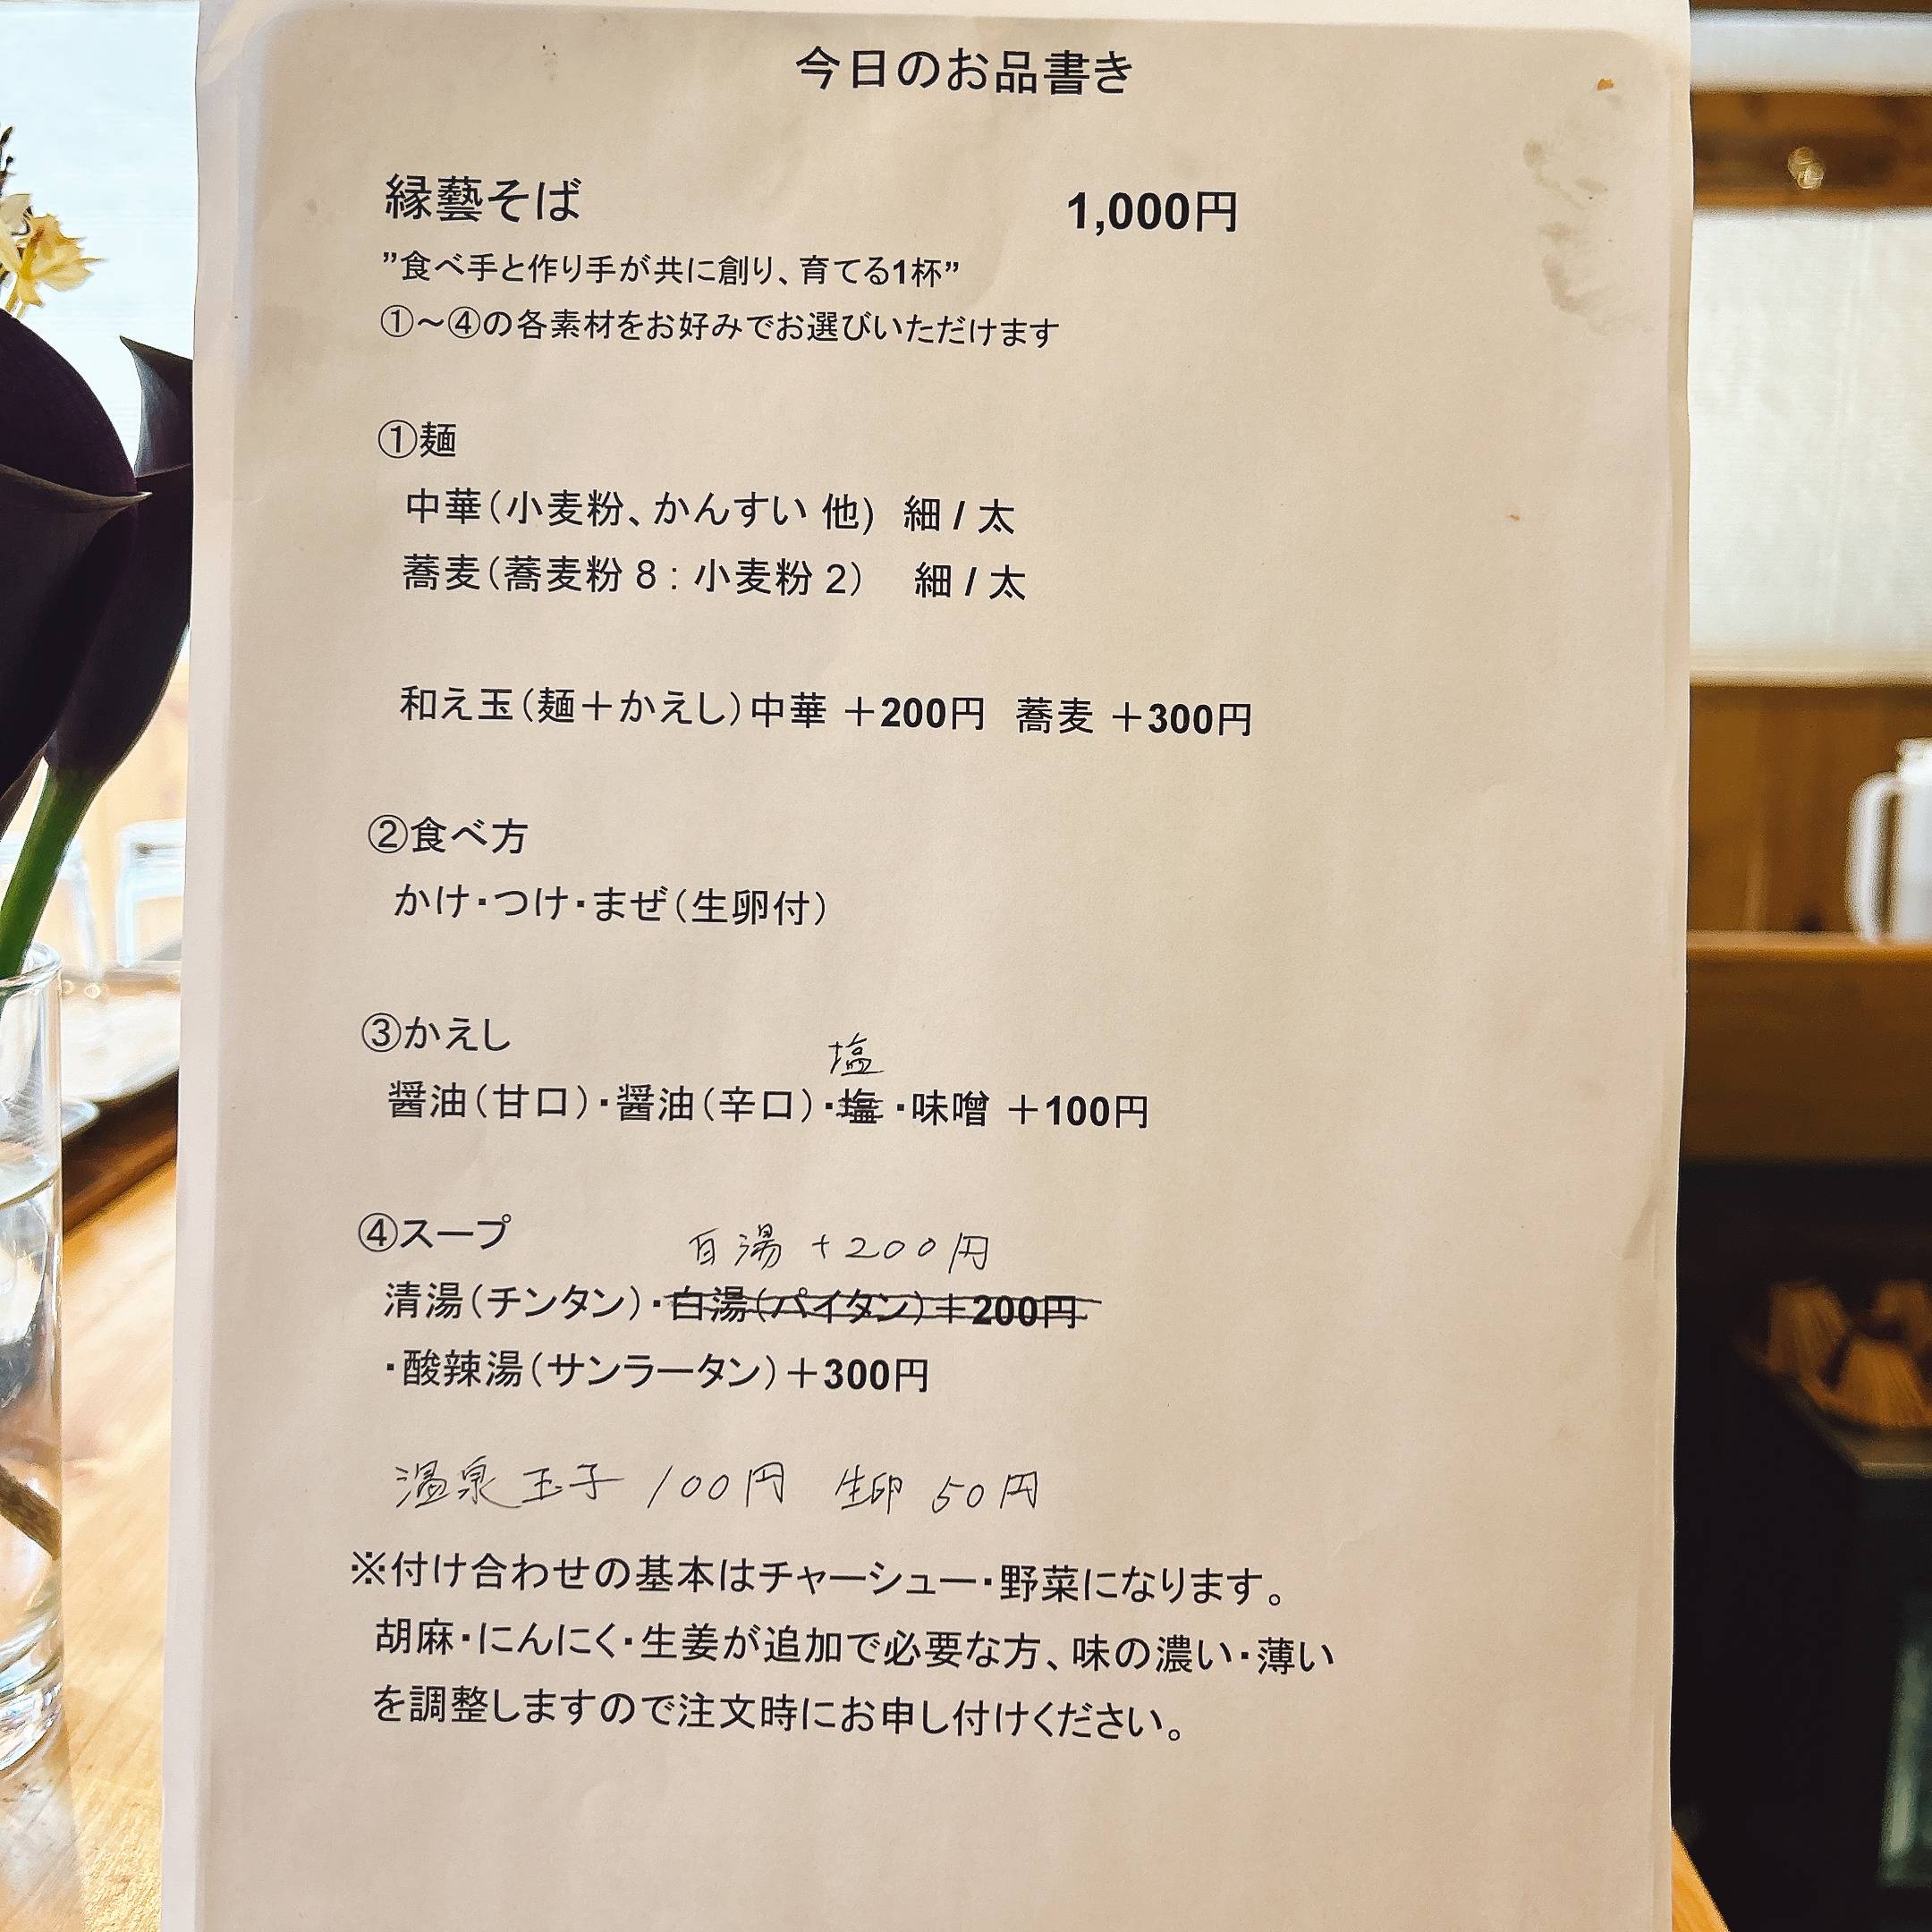 今日のお品書き
縁藝そば 1,000円
”食べ手と作り手が共に創り、育てる1杯”
①～④の各素材をお好みでお選びいただけます
①麺
中華（小麦粉、かんすい 他) 細 / 太
蕎麦（蕎麦粉 8 : 小麦粉 2） 細 / 太
和え玉（麺＋かえし）中華 ＋200円 蕎麦 ＋300円
②食べ方
かけ・つけ・まぜ（生卵付）
③かえし
塩
醤油（甘口）・醤油（辛口）・塩・味噌 ＋100円
④スープ
白湯 +200円
清湯（チンタン）・白湯（パイタン）＋200円
・酸辣湯（サンラータン）＋300円
温泉玉子 100円 生卵 50円
※付け合わせの基本はチャーシュー・野菜になります。
胡麻・にんにく・生姜が追加で必要な方、味の濃い・薄い
を調整しますので注文時にお申し付けください。